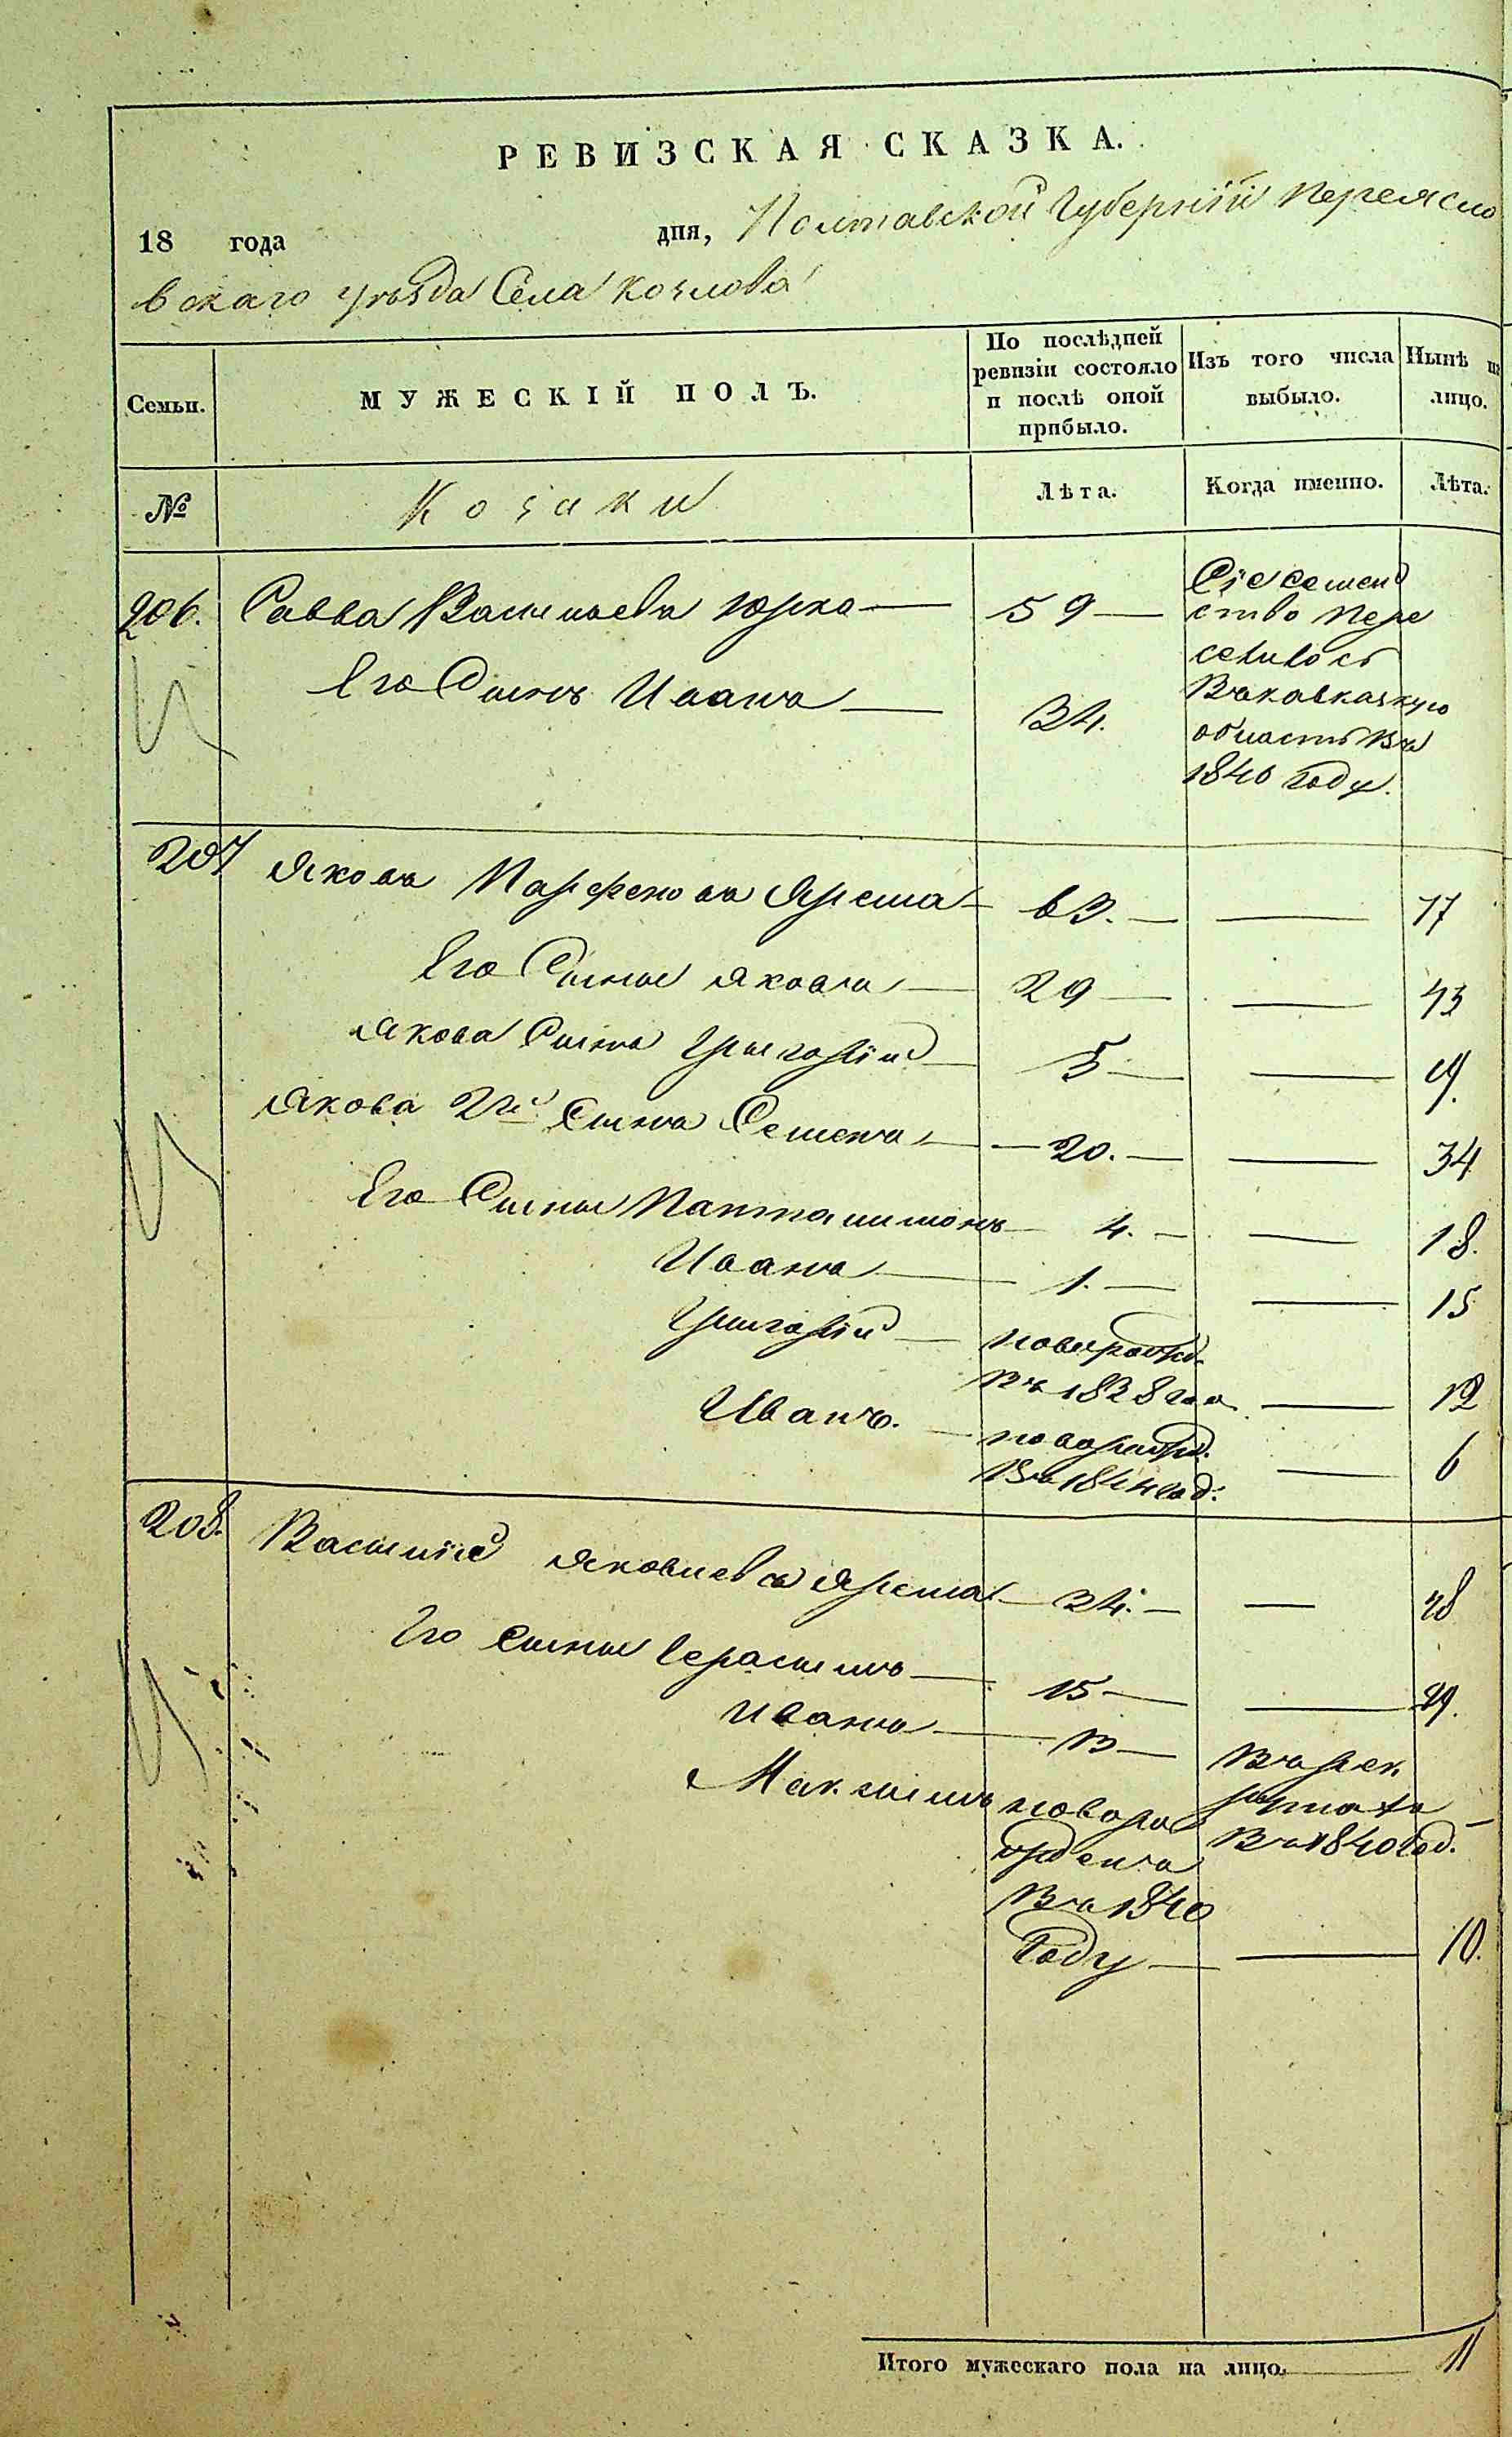 РЕВИЗСКАЯ СКАЗКА.
18 года дня, Полтавской Губерніи Переясло
вскаго уѣзда Села Козлова
Семьи. МУЖЕСКІЙ ПОЛЪ. По послѣдней ревизіи состояло и послѣ оной прибыло. Изъ того числа выбыло. Нынѣ на лицо.
№ Козаки Лѣта. Когда именно. Лѣта.
206. Савва Васильевъ Юрко 59 Сіе семей
ство пере
селилось
Его Сынъ Иванъ 34. Въ кавказкую
область въ
1840 году.
207 Яковъ Парфеновъ Ярема 63. 77
Его Сыны Яковъ 29 43
Якова Сынъ Григорій 5 19.
Якова 2й Сынъ Семенъ 20. 34
Его Сыны Панталимонъ 4. 18.
Иванъ 1. 15
Григорій новорожд.
въ 1838 год 12
Иванъ. новорожд.
въ 1844 год: 6
208. Василій Яковлевъ Ярема 34. 48
Его сыны Герасимъ 15 29.
Иванъ 3 Въ рек
Максимъ новоро рутахъ
жденъ въ 1840 год.
въ 1840
Году 10.
Итого мужескаго пола на лицо. 11